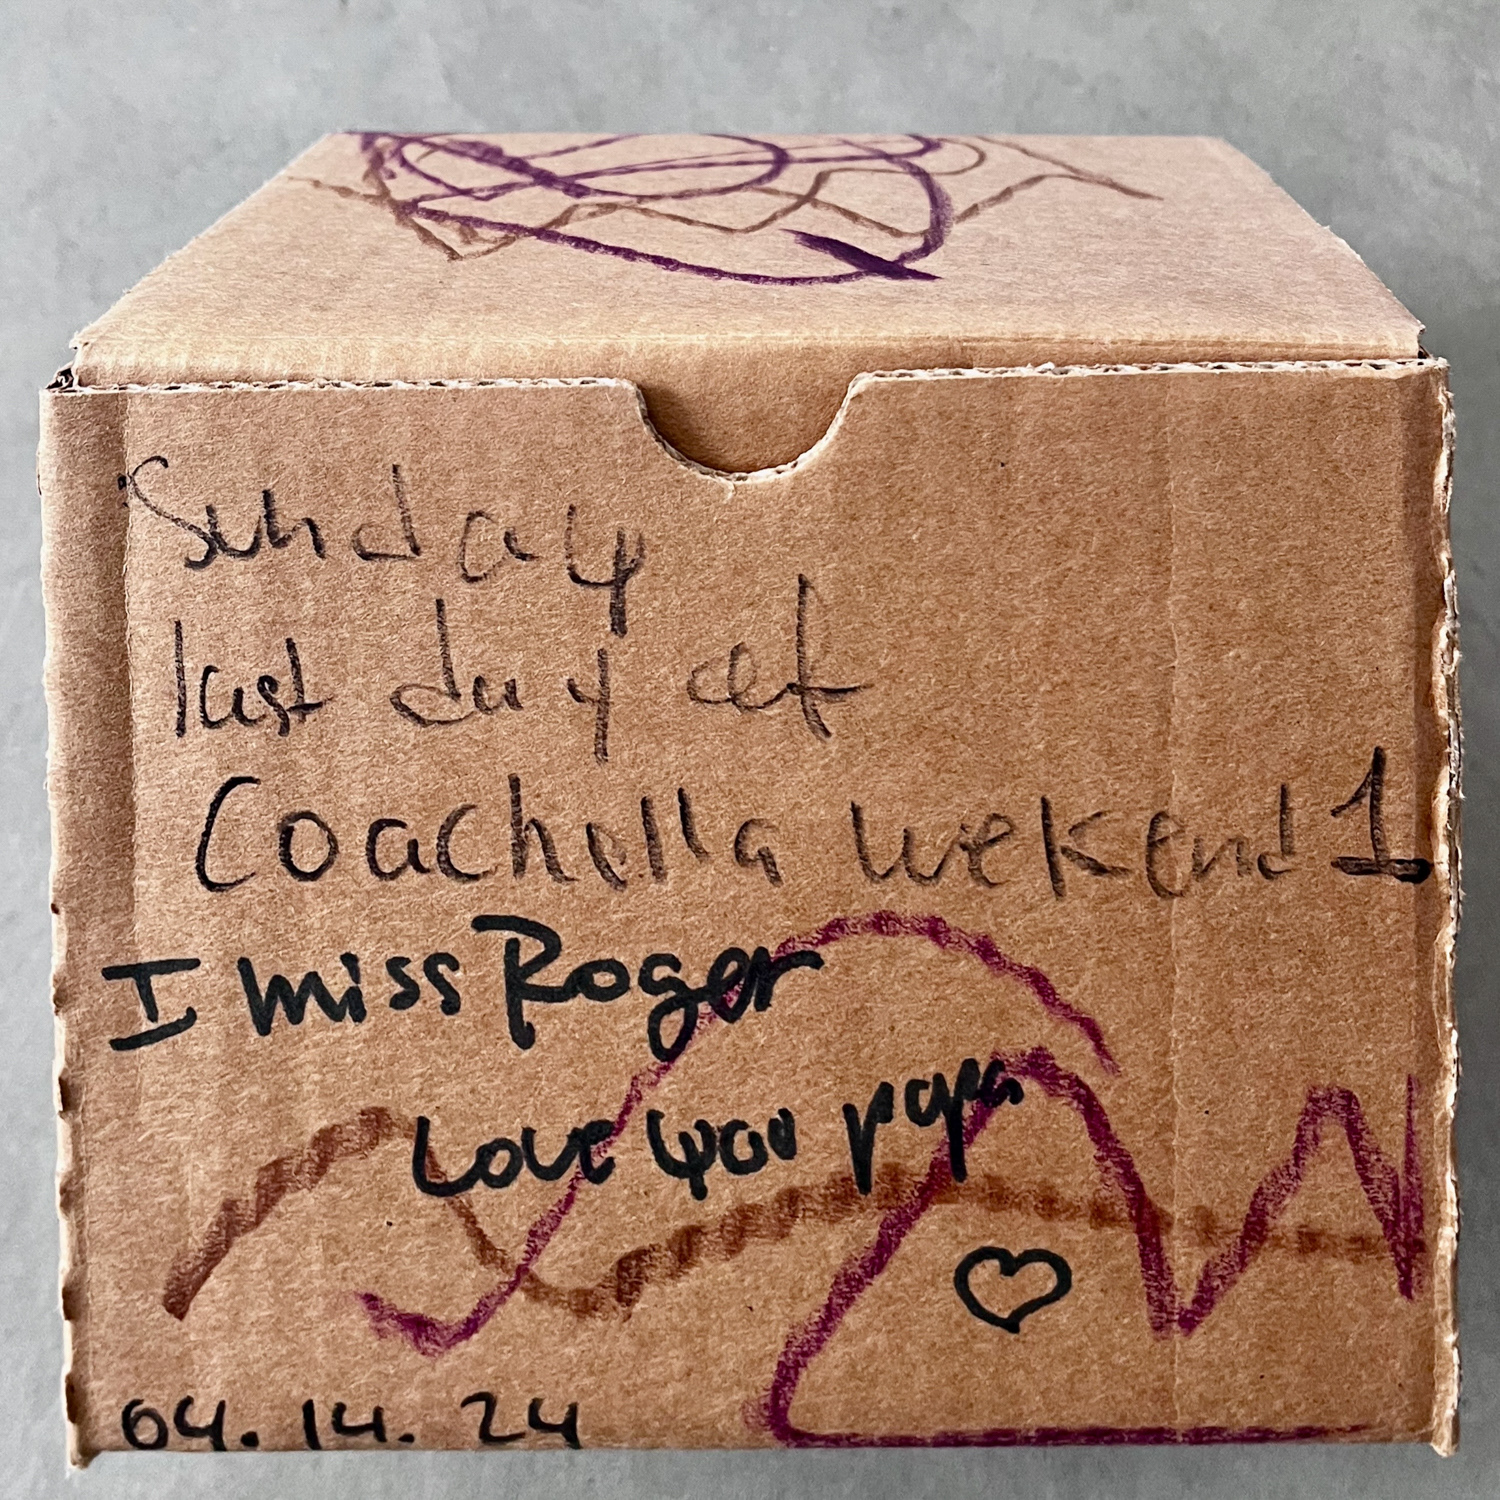 Sunday
last day at
Coachella wekend 1
I miss Roger
Love you papa
04.14.24